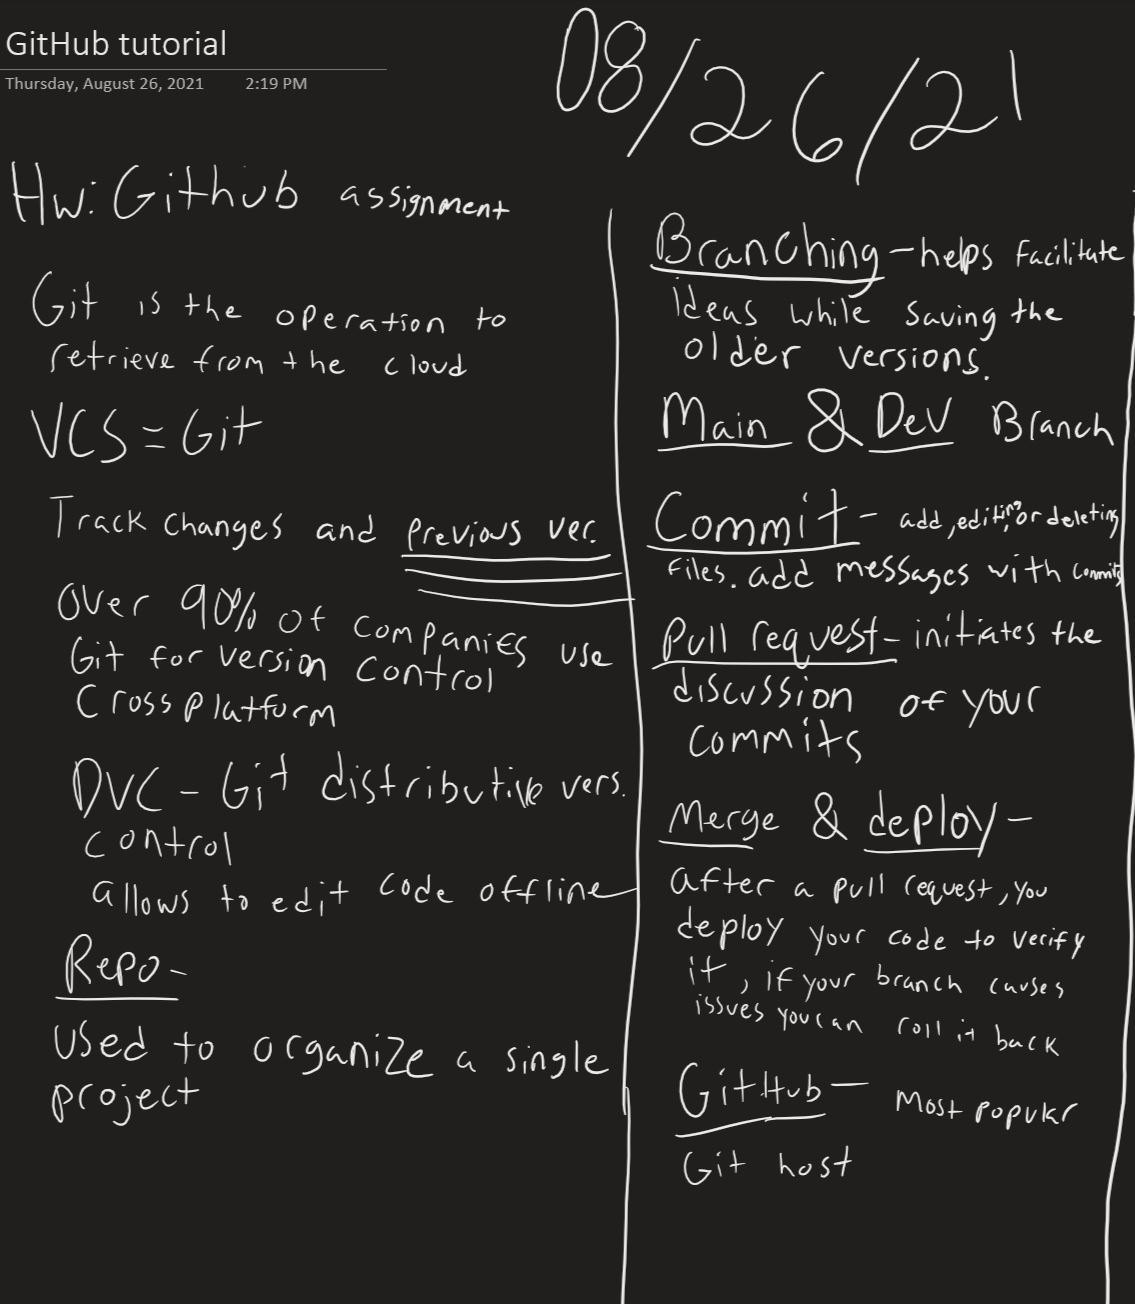 GitHub tutorial
Thursday, August 26, 2021 2:19 PM
08/26/21
Hw: Github assignment
Git is the operation to
retrieve from the cloud
VCS = Git
Track changes and previous ver.
Over 90% of companies use
Git for version control
Cross platform
DVC - Git distributive vers.
control
allows to edit code offline
Repo -
used to organize a single
project
Branching - helps facilitate
ideas while saving the
older versions.
Main & Dev Branch
Commit - add, editing, or deleting
files. add messages with commits
Pull request - initiates the
discussion of your
commits
Merge & deploy -
after a pull request, you
deploy your code to verify
it, if your branch causes
issues you can roll it back
GitHub - Most popular
Git host